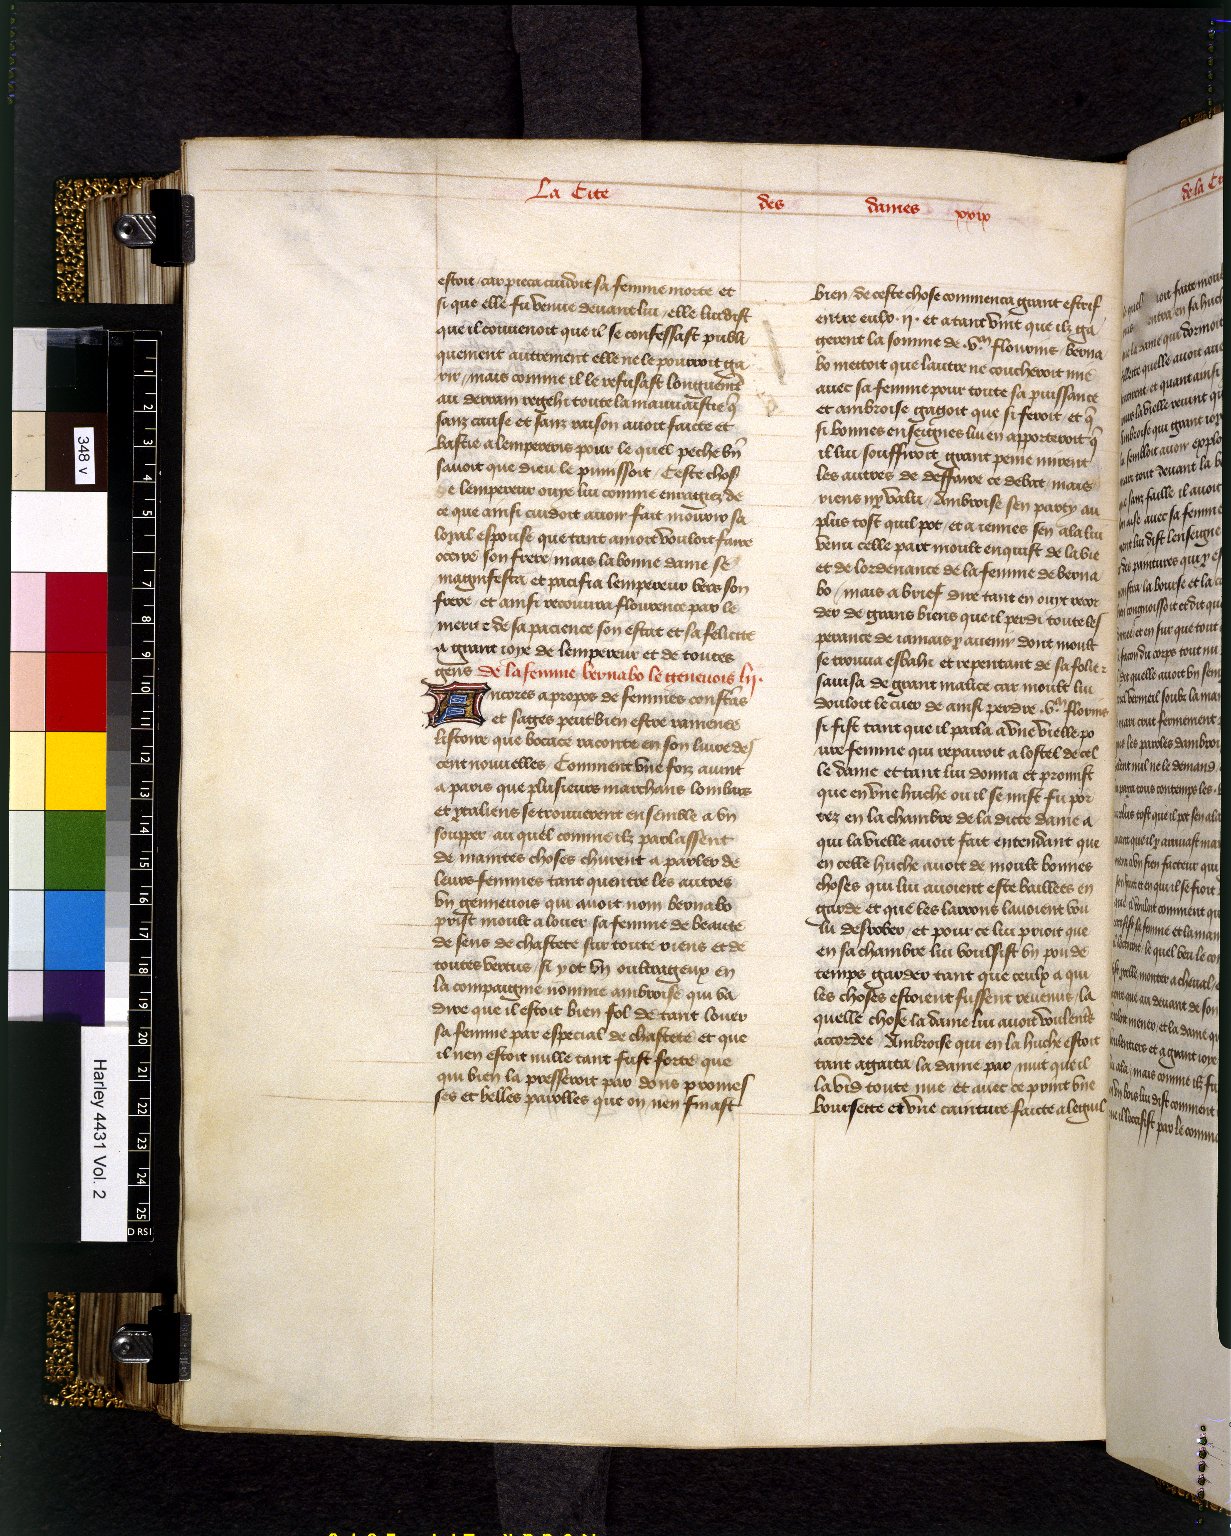 La Cite des dames xxix
estoit / car pieca cuidoit sa femme morte et
si que elle fu venue devant lui / elle lui dist
que il couvenoit que il se confessast publi
quement autrement elle ne le pourroit ga
rir / mais comme il le refusast longuemt
au derrain regehi toute la mauvaistie q̃
sanz cause et sanz raison avoit faicte et
bastie a lempereris pour le quel peche vn
savoit que dieu le punissoit / Ceste chose
lempereur ouye lui comme enragiez de
ce que ainsi cuidoit avoir fait mourir sa
loyal espouse que tant amoit vouloit faire
occire son frere / mais la bonne dame se
magnifesta et pacifia lempereur vers son
frere / et ainsi recouvra flourence par le
merite de sa pacience son estat et sa felicite
a grant ioye de lempereur et de toutes
gens De la femme bernabo le genevois lii.
Encores a propos de femmes constãs
et sages peut bien estre ramenee
listoire que bocace raconte en son livre des
cent nouvelles / Comment vne foiz avint
a paris que plusieurs marchans lombars
et ytaliens se trouverent ensemble a vn
soupper au quel comme ilz parlassent
de maintes choses cheurent a parler de
leurs femmes tant quentre les autres
vn gennevois qui avoit nom bernabo
prist moult a louer sa femme de beaute
de sens de chastete sur toute riens et de
toutes vertus / si y ot vn oultrageux en
la compaignie nomme ambroise qui va
dire que il estoit bien fol de tant louer
sa femme par especial de chastete et que
il nen estoit nulle tant fust forte que
qui bien la presseroit par dons promes
ses et belles parolles que on nen finast
bien / de ceste chose commenca grant estrif
entre eulx .ii. et a tant vint que ilz ga
gerent la somme de .vm. flourins / berna
bo mettoit que lautre ne coucheroit mie
avec sa femme pour toute sa puissance
et ambroise gagoit que si feroit et q̃
si bonnes enseignes lui en apporteroit q̃
il lui souffiroit grant peine mirent
les autres de deffaire ce debat / mais
riens ny valu / Ambroise sen party au
plus tost quil pot / et a iennes sen ala lui
venu celle part moult enquist de la vie
et de lordenance de la femme de berna
bo / mais a brief dire tant en ouyt recor
der de grans biens que il perdi toute les
perance de iamais y avenir dont moult
se trouva esbahi et repentant de sa folie
savisa de grant malice car moult lui
douloit le cuer de ainsi perdre .vm. florins
si fist tant que il parla a vne vielle po
vre femme qui repairoit a lostel de cel
le dame et tant lui donna et promist
que en vne huche ou il se mist fu por
tez en la chambre de la dicte dame a
qui la vielle avoit fait entendant que
en celle huche avoit de moult bonnes
choses qui lui avoient este baillees en
garde et que les larrons lavoient vou
lu desrober / et pour ce lui prioit que
en sa chambre lui voulsist vn pou de
temps garder tant que ceulx a qui
les choses estoient fussent revenus / la
quelle chose la dame lui avoit voulentiers
accordee / Ambroise qui en la huche estoit
tant agaita la dame par nuit que il
la vid toute nue et avec ce print vne
boursette et vne cainture faicte a leguil
de la Ci
348 v
Harley 4431 Vol. 2
1 2 3 4 5 7 8 9 10 11 12 13 14 15 16 17 18 19 20 21 22 23 24 25